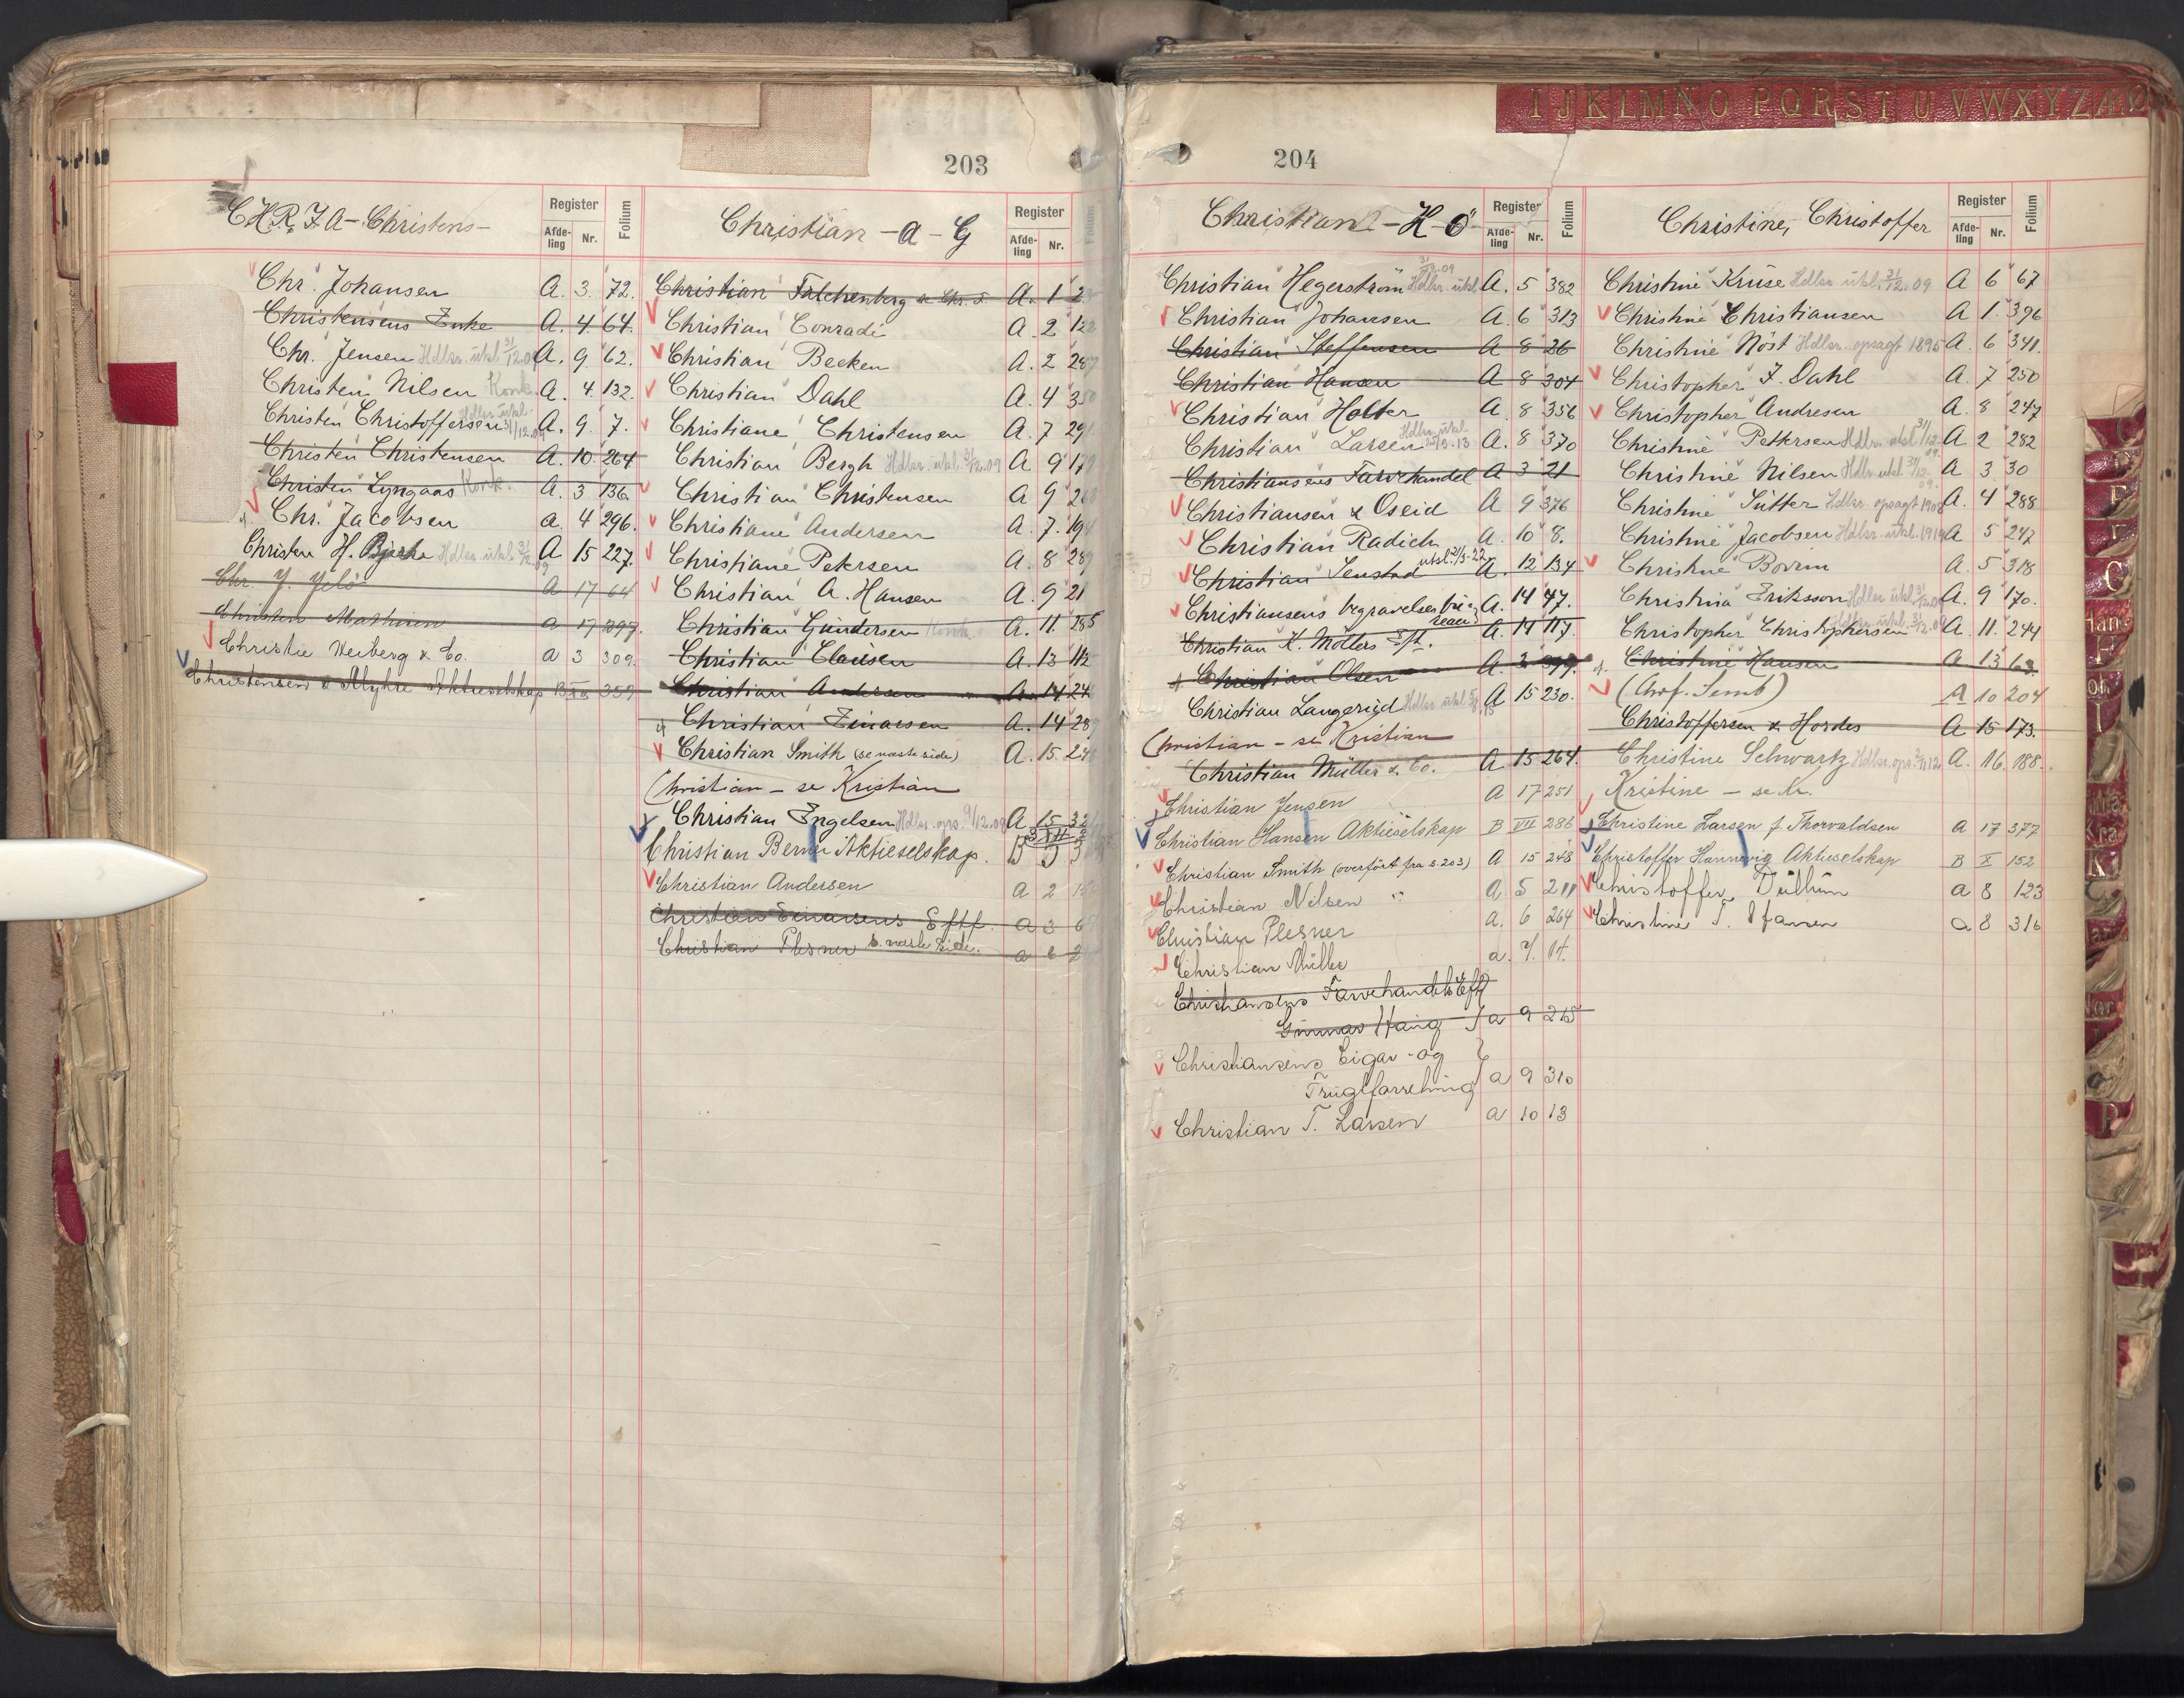 203
CHR, F. A - Christens-
Register
Afde-ling Nr. Folium
Chr. Johansen A. 3. 72.
Christensens Enke A. 4 64.
Chr. Jensen Hdlsr. utl. 31/12.09 A. 9. 62.
Christen Nilsen Konk. A. 4. 132.
Christen Christoffersen Hdlsr. utl. 31/12.09 A. 9. 7.
Christen Christensen A. 10. 264
Christen Lyngaas Konk. A. 3 136
Chr. Jacobsen a. 4 296.
Christen H. Bjerke Hdlsr. utl. 31/12.09 A 15 227.
Chr. Y. Yelö A 17 64
Christen Mathisen a 17 297.
Christie Heiberg & Co. a 3 309.
Christensen & Myhre Aktieselskap B 359
Christian - A - G
Register
Afde-ling Nr. Folium
Christian Falchenberg A. 1
Christian Conradi A. 2
Christian Becken A. 2
Christian Dahl A. 4
Christiane Christensen A. 7
Christian Bergh Hdlsr. utl. 31/12.09 A 9
Christian Christensen A 9
Christiane Andersen A. 7.
Christiane Petersen A. 8
Christian A. Hansen A. 9
Christian Gundersen Konk. A. 11.
Christian Clausen A. 13
Christian Andersen A. 14
Christian Einarsen A. 14
Christian Smith (se næste side) A. 15
Christian - se Kristian
Christian Engelsen Hdlsr. ops. 9/12.09 A 15
Christian Berner Aktieselskap. B
Christian Andersen a 2
Christian Einarsens Eftf. a 3
Christian Plesner s. næste side. a 6
204
I J K L M N O P Q R S T U V W X Y Z Æ Ø
Christian - H - Ö
Register
Afde-ling Nr. Folium
Christian Hegerström Hdlsr. utl. 31/12.09 A. 5 382
Christian Johansen A. 6 313
Christian Steffensen A 8 26
Christian Hansen A 8 304
Christian Holter A. 8 356
Christian Larsen Hdlsr. utl. A. 8 370
Christiansens Farvehandel A 3 21
Christiansen & Oseid A 9 376
Christian Radich A. 10 8.
Christian Senstad utsl. 21/3-22 A. 12 134
Christiansens begravelsesbureau A. 14 47.
Christian K. Möllers Eft. A. 14 117.
Christian Olsen A. 3
Christian Langerud Hdlsr. utl. A 15 230.
Christian - se Kristian
Christian Müller & Co. A 15 264.
Christian Jensen A 17 251
Christian Hansen Aktieselskap B VII 286
Christian Smith (overfört fra s. 203) A 15 248
Christian Nilsen a. 5 211
Christian Plesner a. 6 264
Christian Müller a. 7. 14.
Christiansens Farvehandels Eftf
Gunnar Haug } a 9 215
Christiansens Cigar- og
Frugtforretning } a 9 310
Christian T. Larsen a 10 13
Christine, Christoffer
Register
Afde-ling Nr. Folium
Christine Kruse Hdlsr. utl. 31/12.09 A 6 67
Christine Christiansen A 1. 396
Christine Nöst Hdlsr. opsagt 1895 A. 6 341.
Christopher F. Dahl A. 7 250
Christopher Andresen A. 8 247
Christine Pettersen Hdlsr. utsl. 31/12.09. A 2 282
Christine Nilsen Hdlsr. utl. 31/12.09. A 3 30
Christine Sutter Hdlsr. opsagt A. 4 288
Christine Jacobsen Hdlsr. utl. 1914 A 5 247
Christine Bovim A. 5 318
Christina Eriksson Hdlsr. utl. 31/12.09 A. 9 170.
Christopher Christophersen Hdlsr. utl. 31/12.09 A. 11. 244
Christine Hansen A 13 63.
(Chof. Semb) A 10 204
Christoffersen & Hordes A 15 173.
Christine Schwartz Hdlsr. ops. A. 16. 188.
Kristine - se Kr.
Christine Larsen f. Thorvaldsen A 17 377
Christoffer Hannevig Aktieselskap B X 152
Christoffer Dullum a 8 123
Christine T. Hansen a 8 316